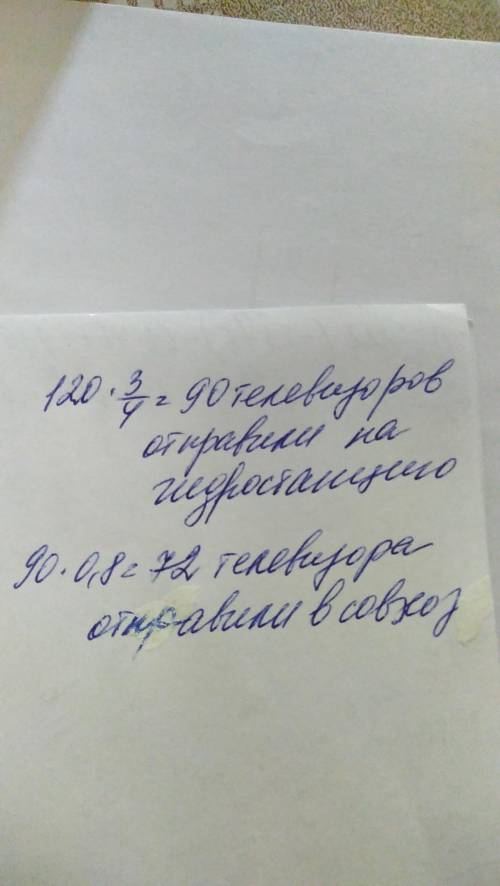 120 · 3/4 = 90 телевизоров
отправили на
гидростанцию
90 · 0,8 = 72 телевизора
отправили в совхоз